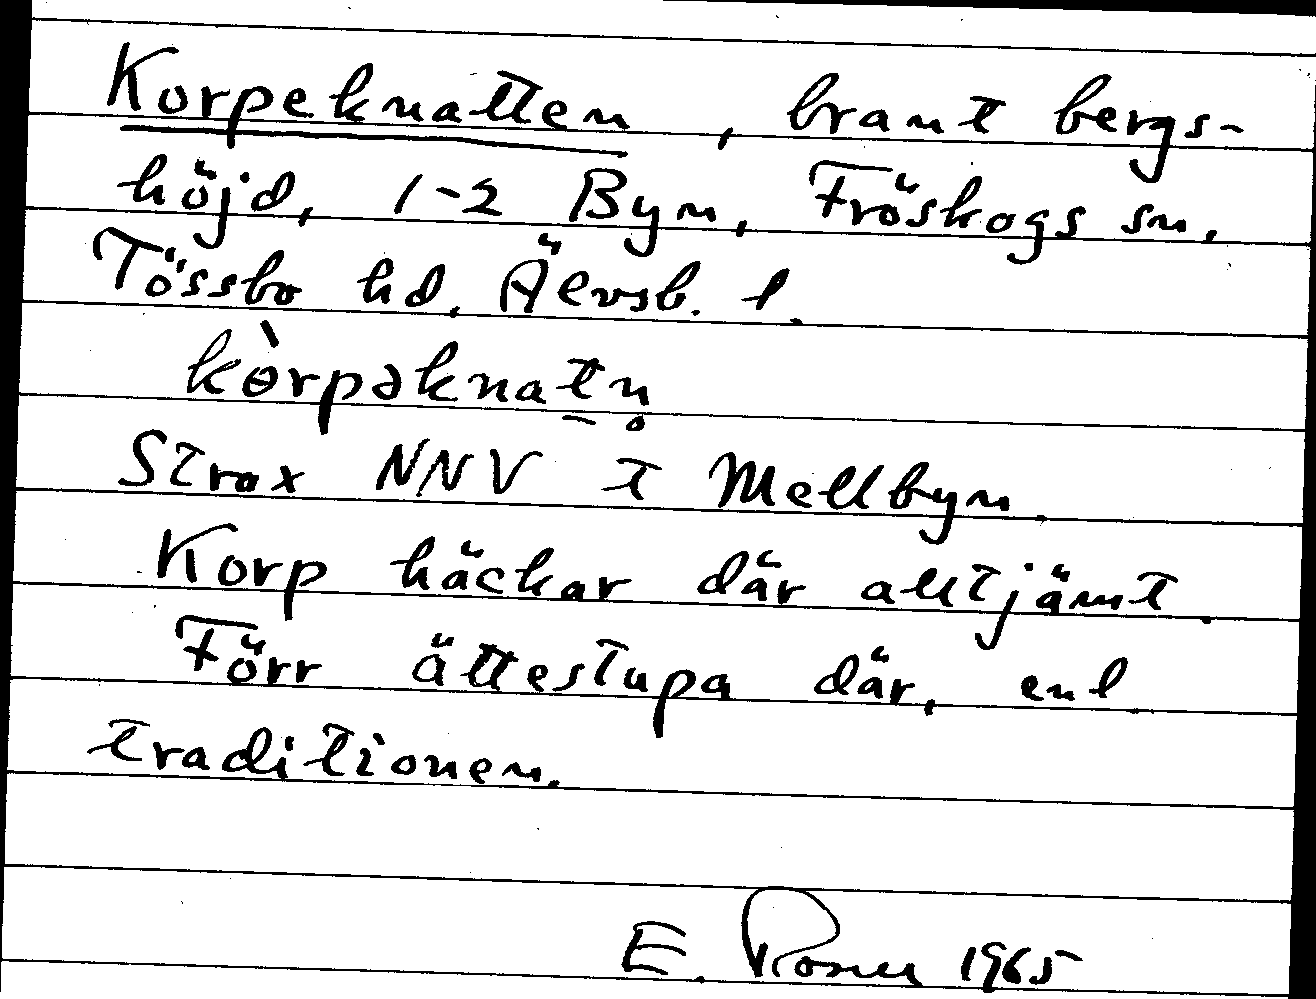 Korpeknatten, brant bergs-
höjd, 1-2 Byn, Fröskogs sn.
Tössbo hd. Älvsb. l.
kòrpəknatn̥
Strax NNV t Mellbyn.
Korp häckar där alltjämt.
Förr ättestupa där, enl.
traditionen.
E. Rosell 1965